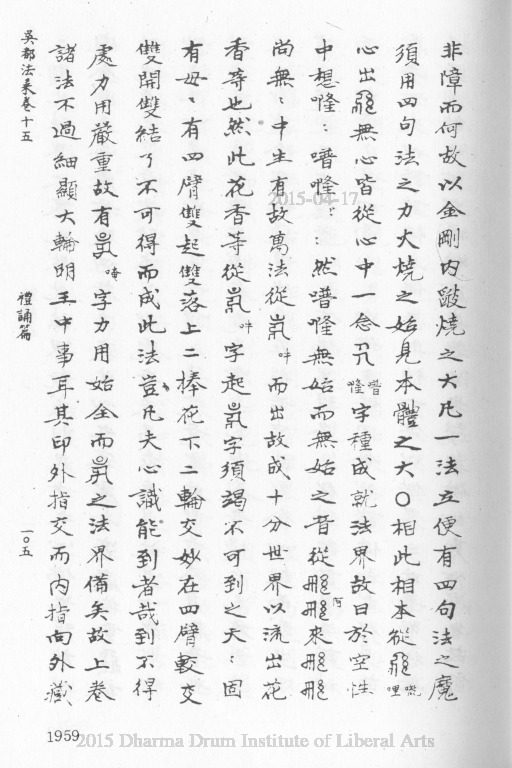 非障而何故以金剛內毀燒之大凡一法立便有四句法之魔
須用四句法之力大燒之始見本體之大〇相此相本從 㘑哩
心出 無心皆從心中一念 㗭㘕字種成就法界故曰於空性
中想㘕:㗭㘕::然㗭㘕無始而無始之音從 阿來
尚無:中生有故萬法從 吽而出故成十分世界以流出花
香等也然此花香等從 吽字起 字須竭不可到之天:固
有毋、有四臂雙起雙落上二捧花下二輪交妙在四臂較交
雙開雙結了不可得而成此法豈凡夫心識能到者哉到不得
處力用嚴重故有 唵字力用始全而 之法界備矣故上卷
諸法不過細顯大輪明王中事耳其印外指交而內指向外藏
吳都法乘卷十五
禮誦篇
一〇五
1959
2015-04-17
2015 Dharma Drum Institute of Liberal Arts